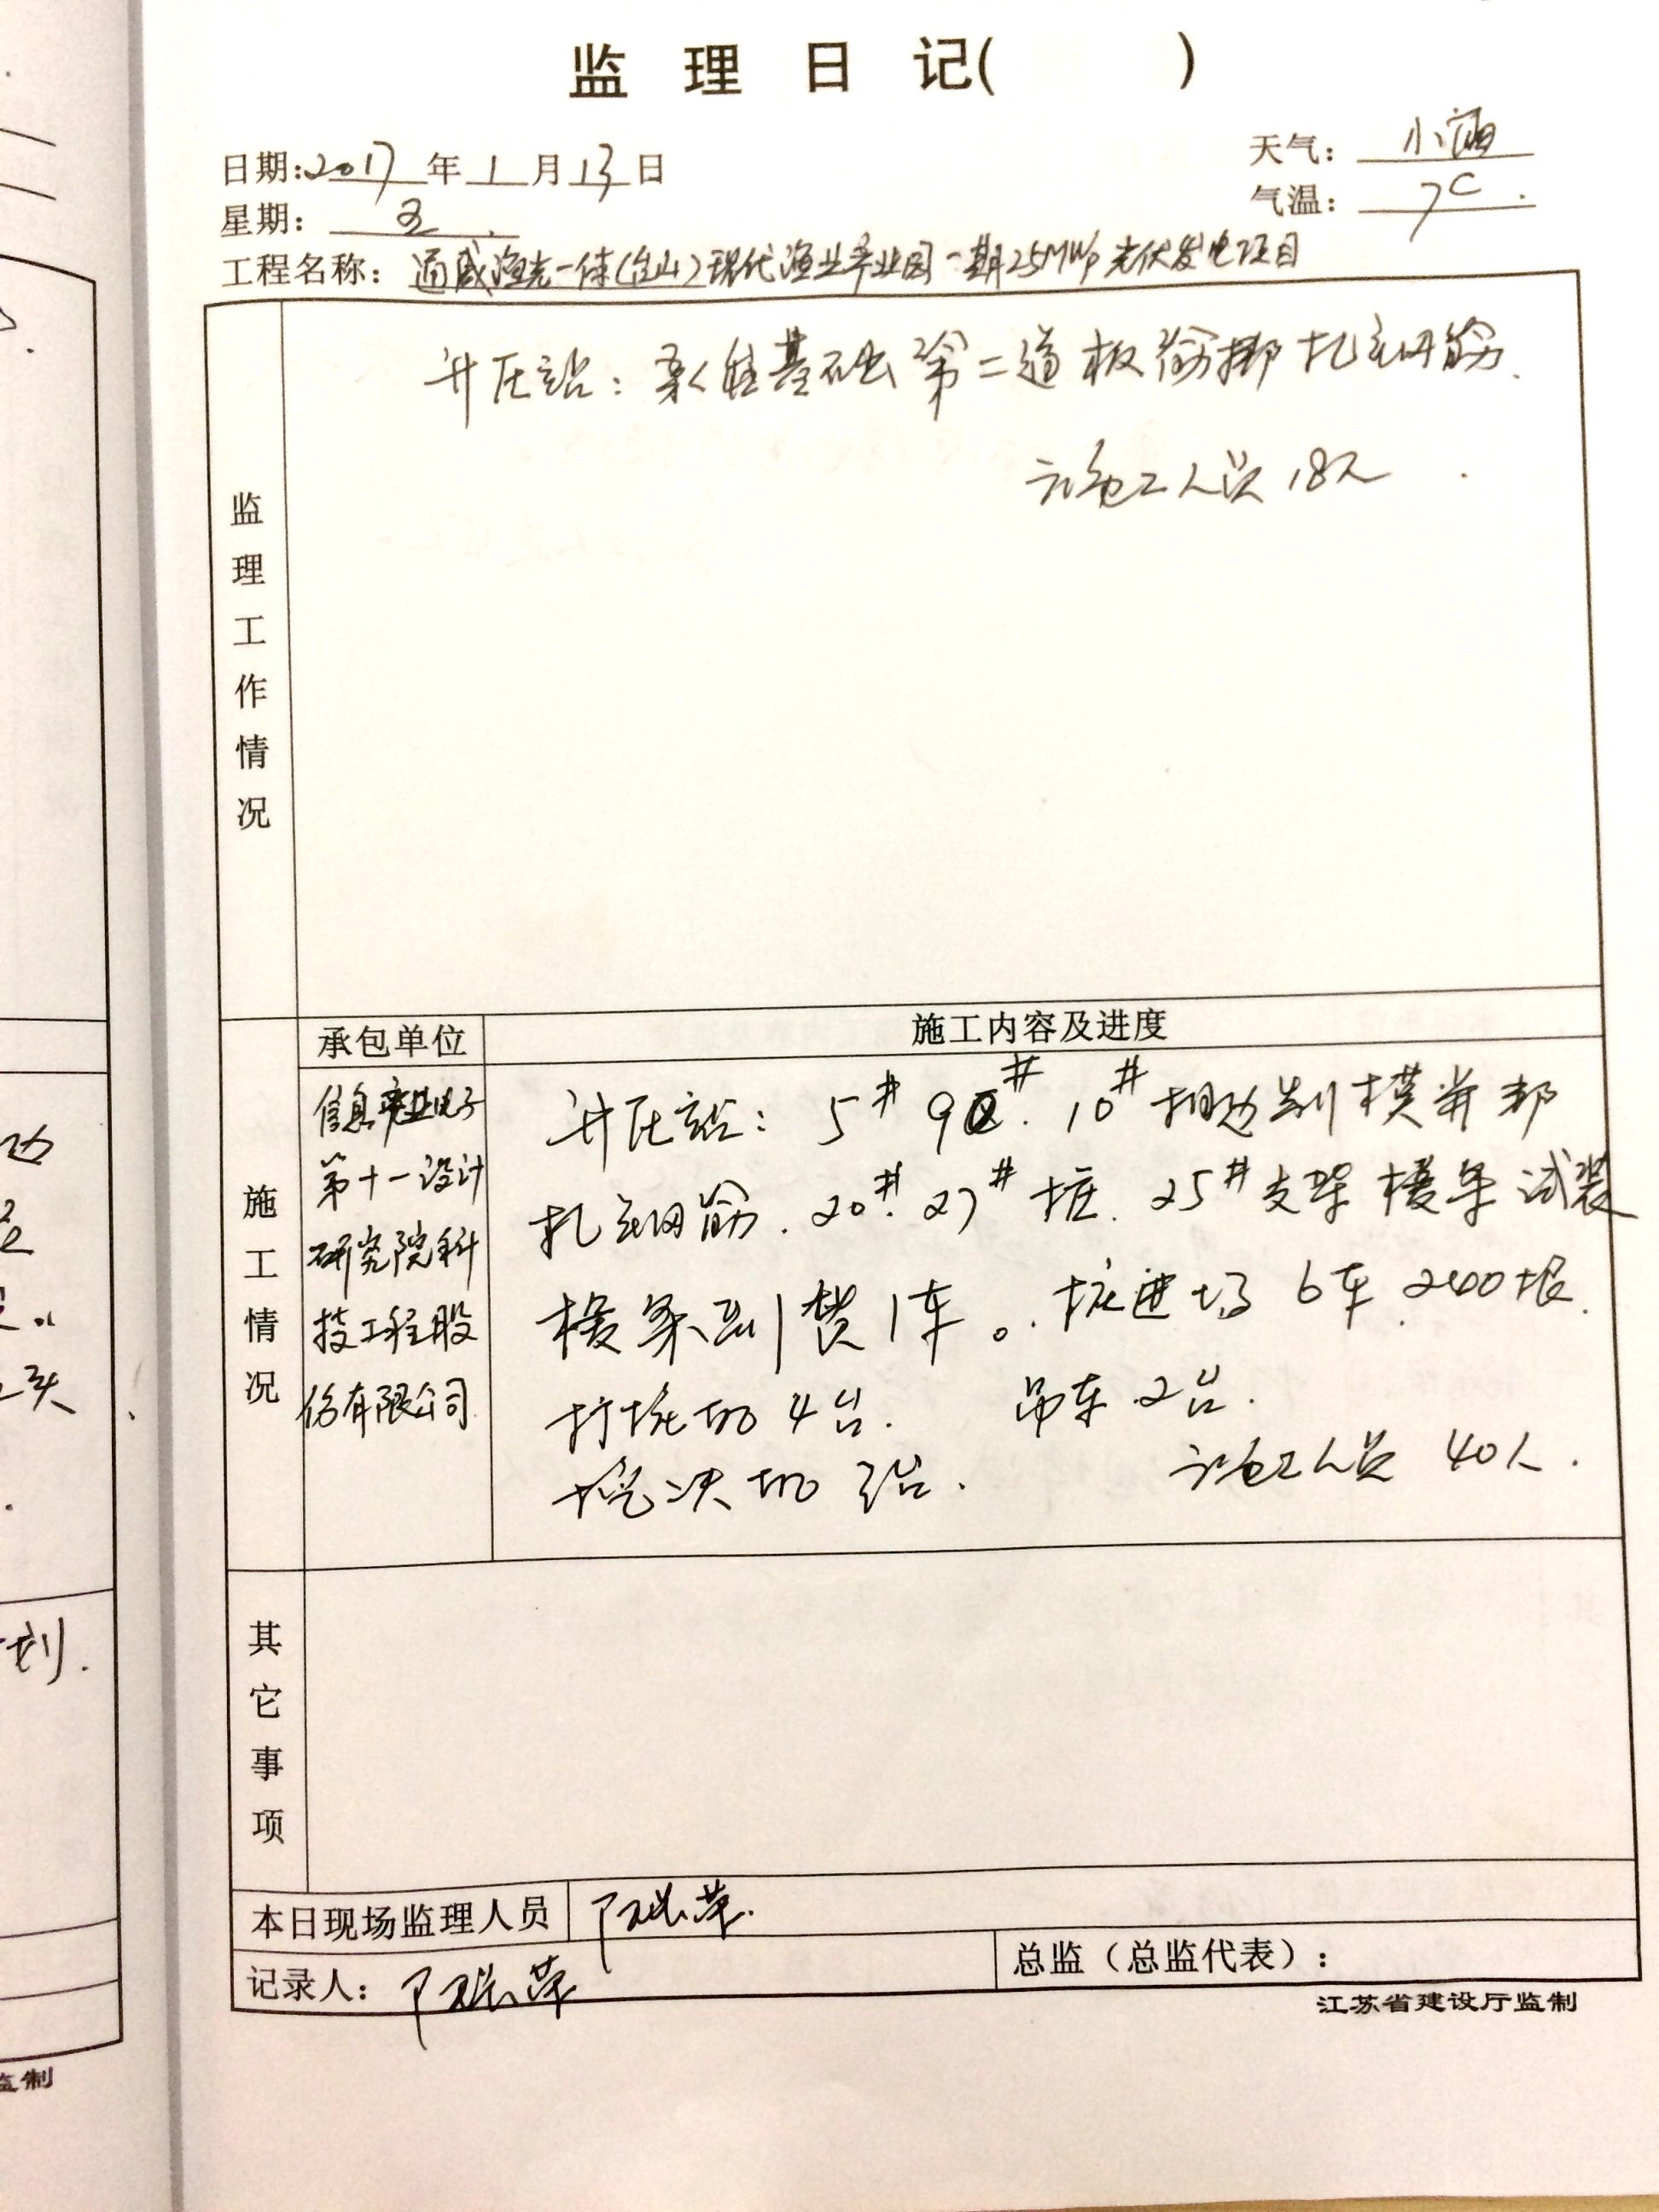 监 理 日 记( )
日期:2017年1月13日
天气：小雨
星期：五
气温：7C.
工程名称：通威渔光一体(台山)现代渔业产业园一期25MWp光伏发电项目
监理工作情况
升压站：基础第二道板筋绑扎钢筋.
施工人员18人.
施工情况
承包单位
施工内容及进度
信息产业电子
第十一设计
研究院科
技工程股
份有限公司.
升压站：5# 9#. 10# 模并邦
扎钢筋. 20#. 27# 桩. 25#支架檩条试装
檩条到货1车。. 桩进场6车.240根.
打桩机4台. 吊车.2台.
机 台. 施工人员 40人.
其它事项
本日现场监理人员
记录人：
总监（总监代表）：
江苏省建设厅监制
划.
监制